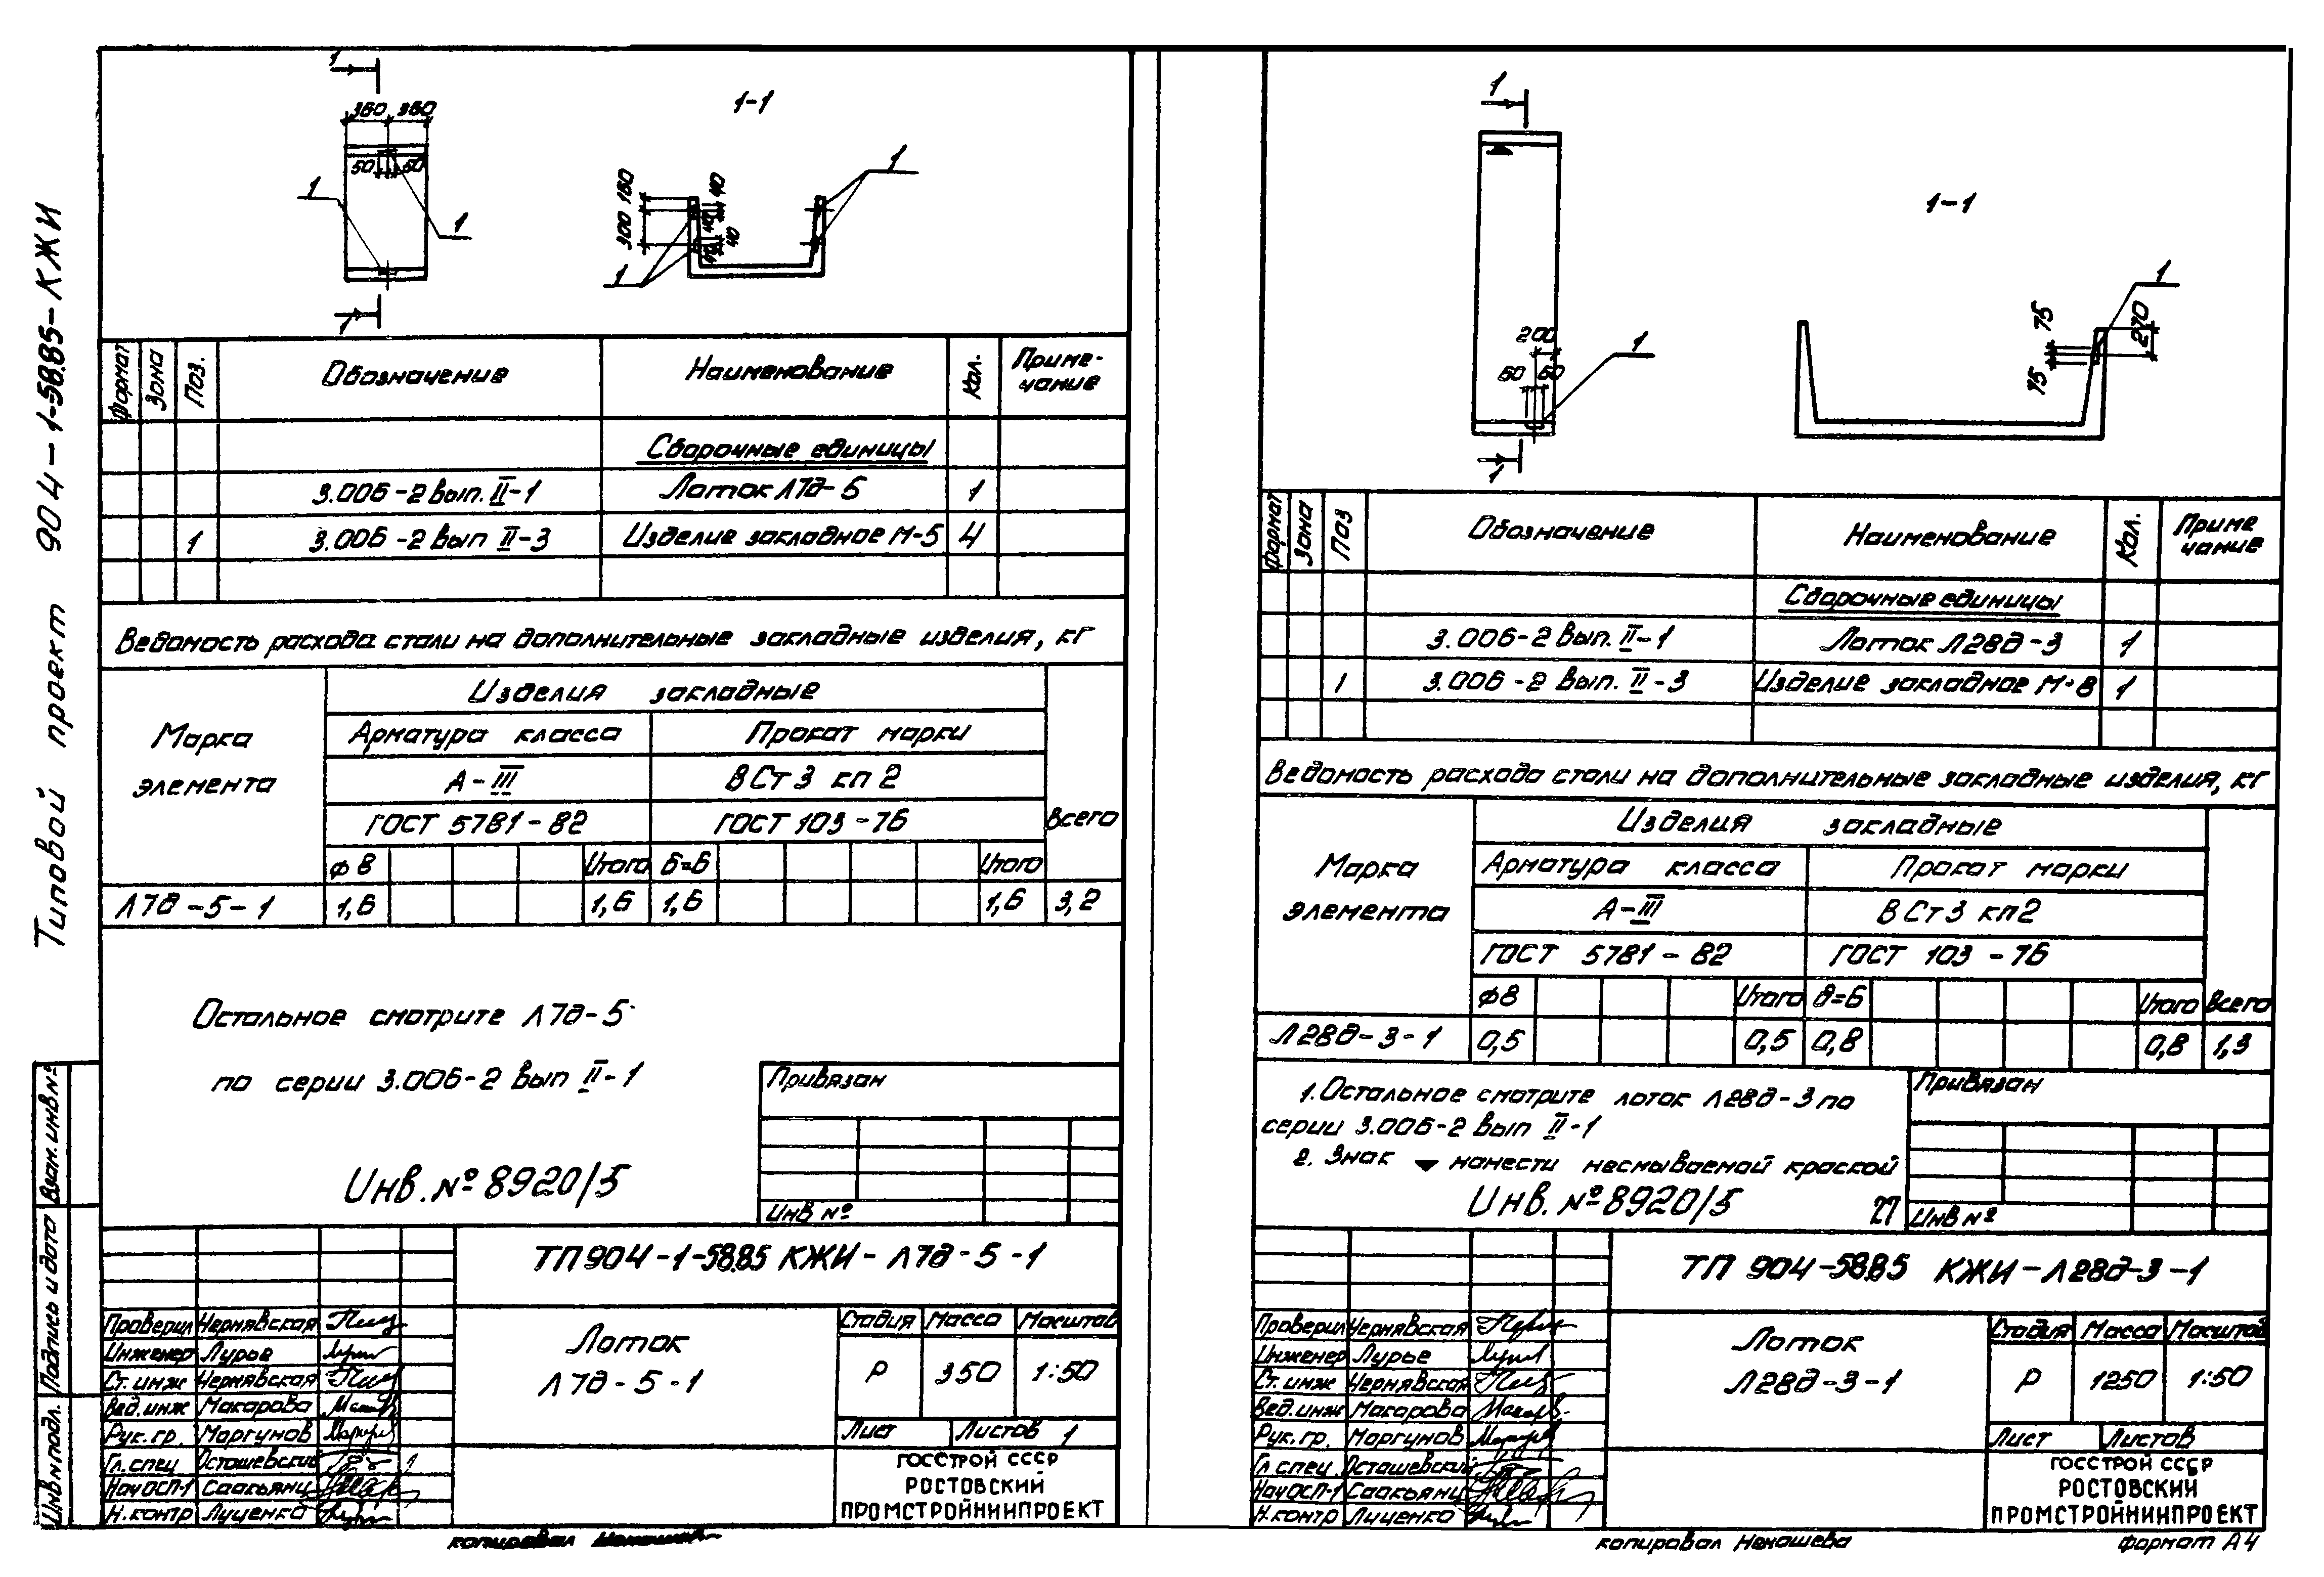 Типовой проект 904-1-58.85-КЖИ
1
360 360
50 50
1
1
1
1-1
160
300
40
40
40
1
1
Формат Зона Поз. Обозначение Наименование Кол. Приме-
чание
Сборочные единицы
3.006-2 вып. II-1 Лоток Л7д-5 1
1 3.006-2 вып II-3 Изделие закладное М-5 4
Ведомость расхода стали на дополнительные закладные изделия, кг
Марка
элемента
Изделия закладные
Арматура класса Прокат марки
А-III ВСт3 кп2
ГОСТ 5781-82 ГОСТ 103-76
Всего
ф8 Итого Б=6 Итого
Л7д-5-1 1,6 1,6 1,6 1,6 3,2
Остальное смотрите Л7д-5
по серии 3.006-2 вып II-1
Инв. № 8920/5
Привязан
Инв №
ТП 904-1-58.85 КЖИ-Л7д-5-1
Проверил Чернявская
Инженер Лурье
Ст. инж Чернявская
Вед. инж Макарова
Рук. гр. Моргунов
Гл. спец Осташевский
Нач ОСП-1 Саакьянц
Н. контр Луценко
Лоток
Л7д-5-1
Стадия Масса Масштаб
Р 350 1:50
Лист Листов 1
ГОССТРОЙ СССР
РОСТОВСКИЙ
ПРОМСТРОЙНИИПРОЕКТ
Взам. инв №
Подпись и дата
Инв № подл.
копировал
1
200
50 50
1
1
1-1
75
75
270
1
Формат Зона Поз Обозначение Наименование Кол. Приме
чание
Сборочные единицы
3.006-2 вып. II-1 Лоток Л28д-3 1
1 3.006-2 вып. II-3 Изделие закладное М-8 1
Ведомость расхода стали на дополнительные закладные изделия, кг
Марка
элемента
Изделия закладные
Арматура класса Прокат марки
А-III ВСт3 кп2
ГОСТ 5781-82 ГОСТ 103-76
ф8 Итого д=6 Итого Всего
Л28д-3-1 0,5 0,5 0,8 0,8 1,3
1. Остальное смотрите лоток Л28д-3 по
серии 3.006-2 вып II-1
2. Знак ▼ нанести несмываемой краской
Инв. № 8920/5 27
Привязан
Инв №
ТП 904-58.85 КЖИ-Л28д-3-1
Проверил Чернявская
Инженер Лурье
Ст. инж Чернявская
Вед. инж Макарова
Рук. гр. Моргунов
Гл. спец. Осташевский
Нач ОСП-1 Саакьянц
Н. контр Луценко
Лоток
Л28д-3-1
Стадия Масса Масштаб
Р 1250 1:50
Лист Листов
ГОССТРОЙ СССР
РОСТОВСКИЙ
ПРОМСТРОЙНИИПРОЕКТ
копировал Ненашева
формат А4